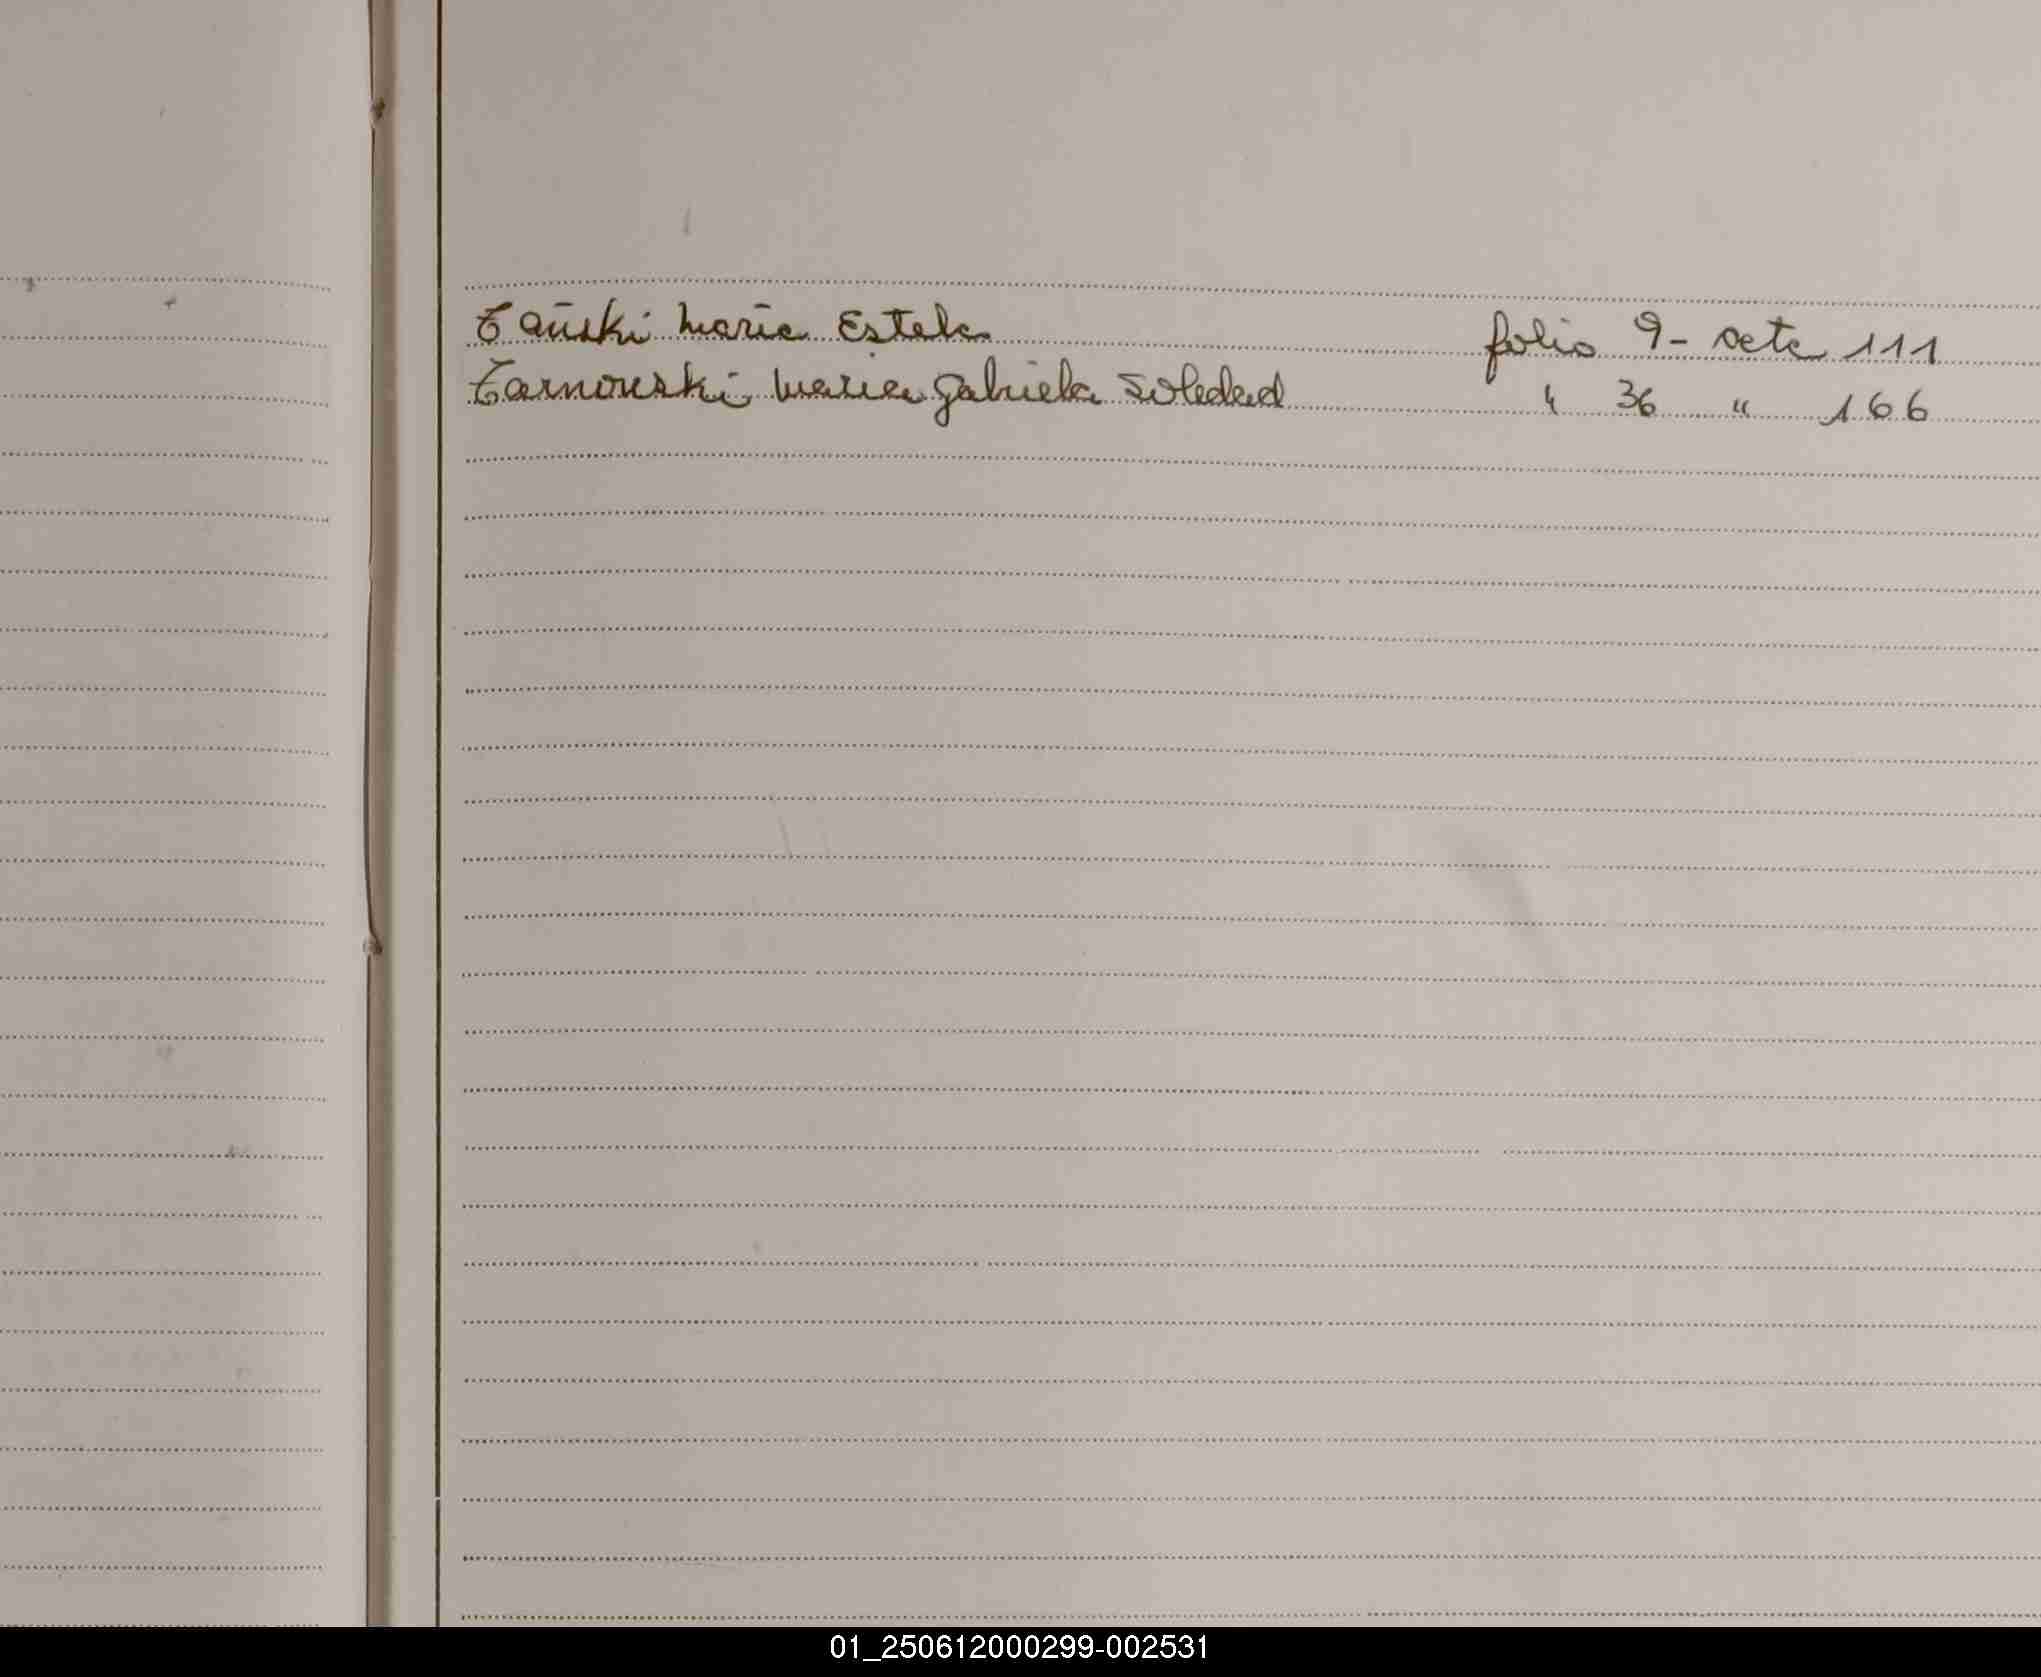 Tañski Maria Estela folio 9- acta 111
Tarnowski Maria Gabriela Soledad " 36 " 166
01_250612000299-002531